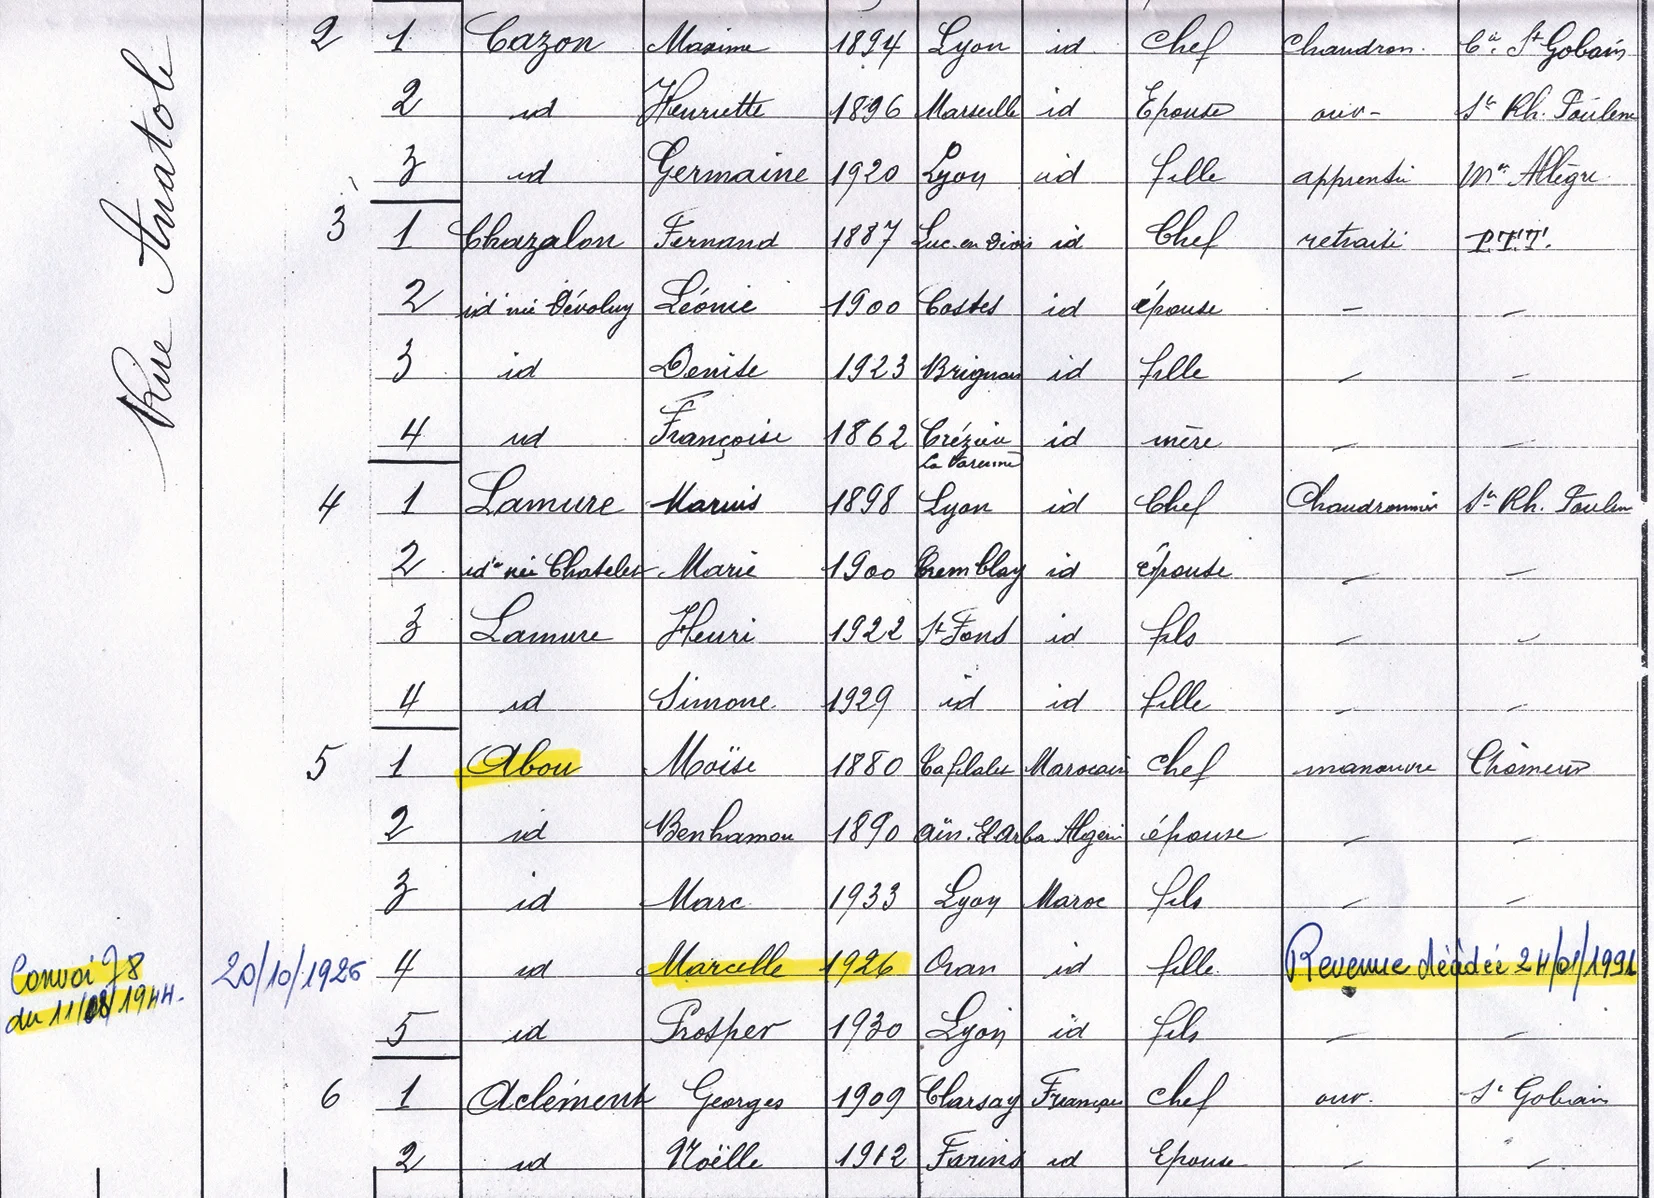 Rue Anatole
2 1 Cazon Maxime 1894 Lyon id Chef Chaudron. Cie St Gobain
2 id Henriette 1896 Marseille id Epouse ouv- Sté Rh. Poulenc
3 id Germaine 1920 Lyon id fille apprentie Mon Allègre
3 1 Chazalon Fernand 1887 Luc.en Diois id Chef retraité P.T.T.
2 id née Dévoluy Léonie 1900 Costes id épouse - -
3 id Denise 1923 Brignais id fille - -
4 id Françoise 1862 Crézieu id mère - -
La Varenne
4 1 Lamure Marius 1898 Lyon id Chef Chaudronnier Sté Rh. Poulenc
2 id née Chatelet Marie 1900 Tremblay id épouse - -
3 Lamure Henri 1922 St Fons id fils - -
4 id Simone 1929 id id fille - -
5 1 Abou Moïse 1880 Tafilalet Marocain chef manœuvre Chômeur
2 id Benhamou 1890 Aïn.El Arba Algérie épouse - -
3 id Marc 1933 Lyon Maroc fils - -
Convoi 78 20/10/1926 4 id Marcelle 1926 Oran id fille Revenue décédée 24/01/1991
du 11/08/1944.
5 id Prosper 1930 Lyon id fils - -
6 1 Aclément Georges 1909 Clarsay Français chef ouv. St Gobain
2 id Noëlle 1912 Farins id Epouse - -